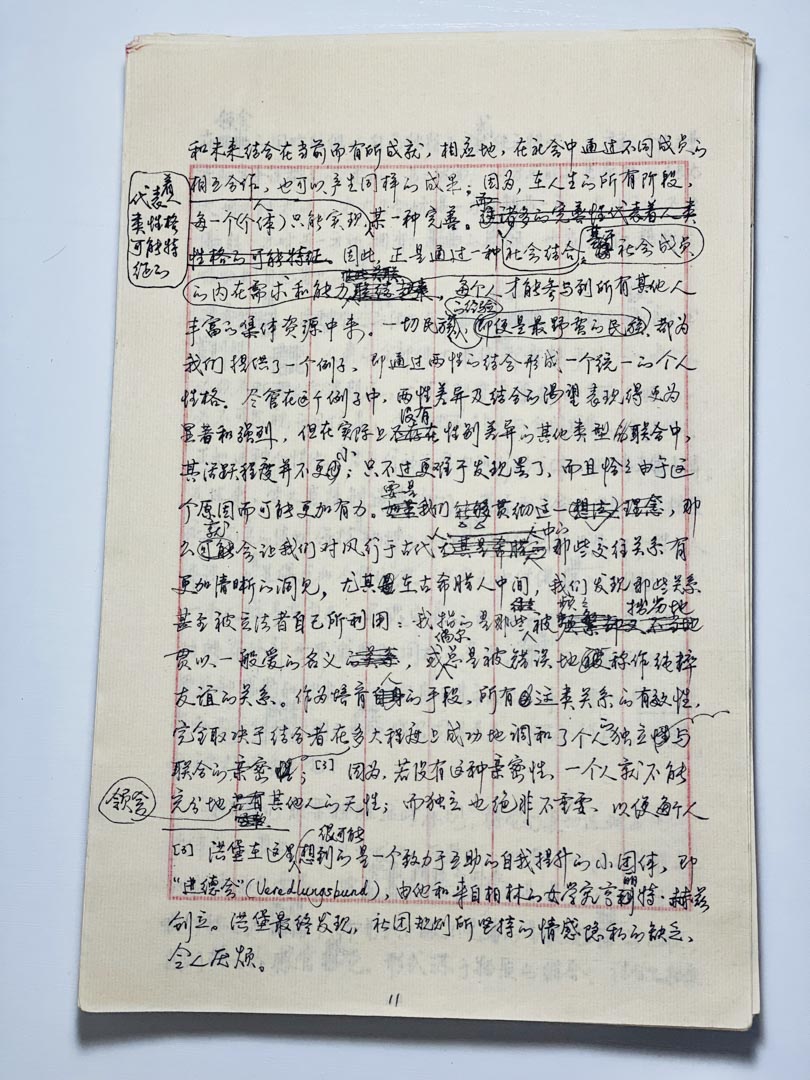 和未来结合在当前而有所成就，相应地，在社会中通过不同成员的
相互合作，也可以产生同样的成果；因为，在人生的所有阶段，
代表着人
类性格
可能特
征的
每一个(个体)人只能实现某一种完善。而诸多的完善性代表着人类
性格的可能特征。因此，正是通过一种社会结合，基于社会成员
的内在需求和能力彼此关联联结起来，每个人才能参与到所有其他人
丰富的集体资源中来。一切民族的经验，即使是最野蛮的民族，都为
我们提供了一个例子，即通过两性的结合形成一个统一的个人
性格。尽管在这个例子中，两性差异及结合的渴望表现得更为
显著和强烈，但在实际上没有不存在性别差异的其他类型的联合中，
其活跃程度并不更小；只不过更难于发现罢了，而且恰恰由于这
个原因而可能更加有力。要是如果我们能够贯彻这一想法理念，那
么就可能会让我们对风行于古代人中的尤其是希腊人那些交往关系有
更加清晰的洞见，尤其是在古希腊人中间，我们发现那些关系
甚至被立法者自己所利用：我指的是那些往往被频繁却又不恰当地
贯以一般爱的名义的关系，或偶尔总是被错误地称作纯粹
友谊的关系。作为培育人自身的手段，所有这类关系的有效性，
完全取决于结合者在多大程度上成功地调和了个人独立性与
联合的亲密性；[3] 因为，若没有这种亲密性，一个人就不能
充分地领会其他人的天性；而独立也绝非不重要，以便每个人
[3] 洪堡在这里很可能想到的是一个致力于互助的自我提升的小团体，即
“道德会”(Veredlungsbund)，由他和来自柏林的女学究亨丽特·赫兹
创立。洪堡最终发现，社团规则所坚持的情感隐私的缺乏，
令人厌烦。
11